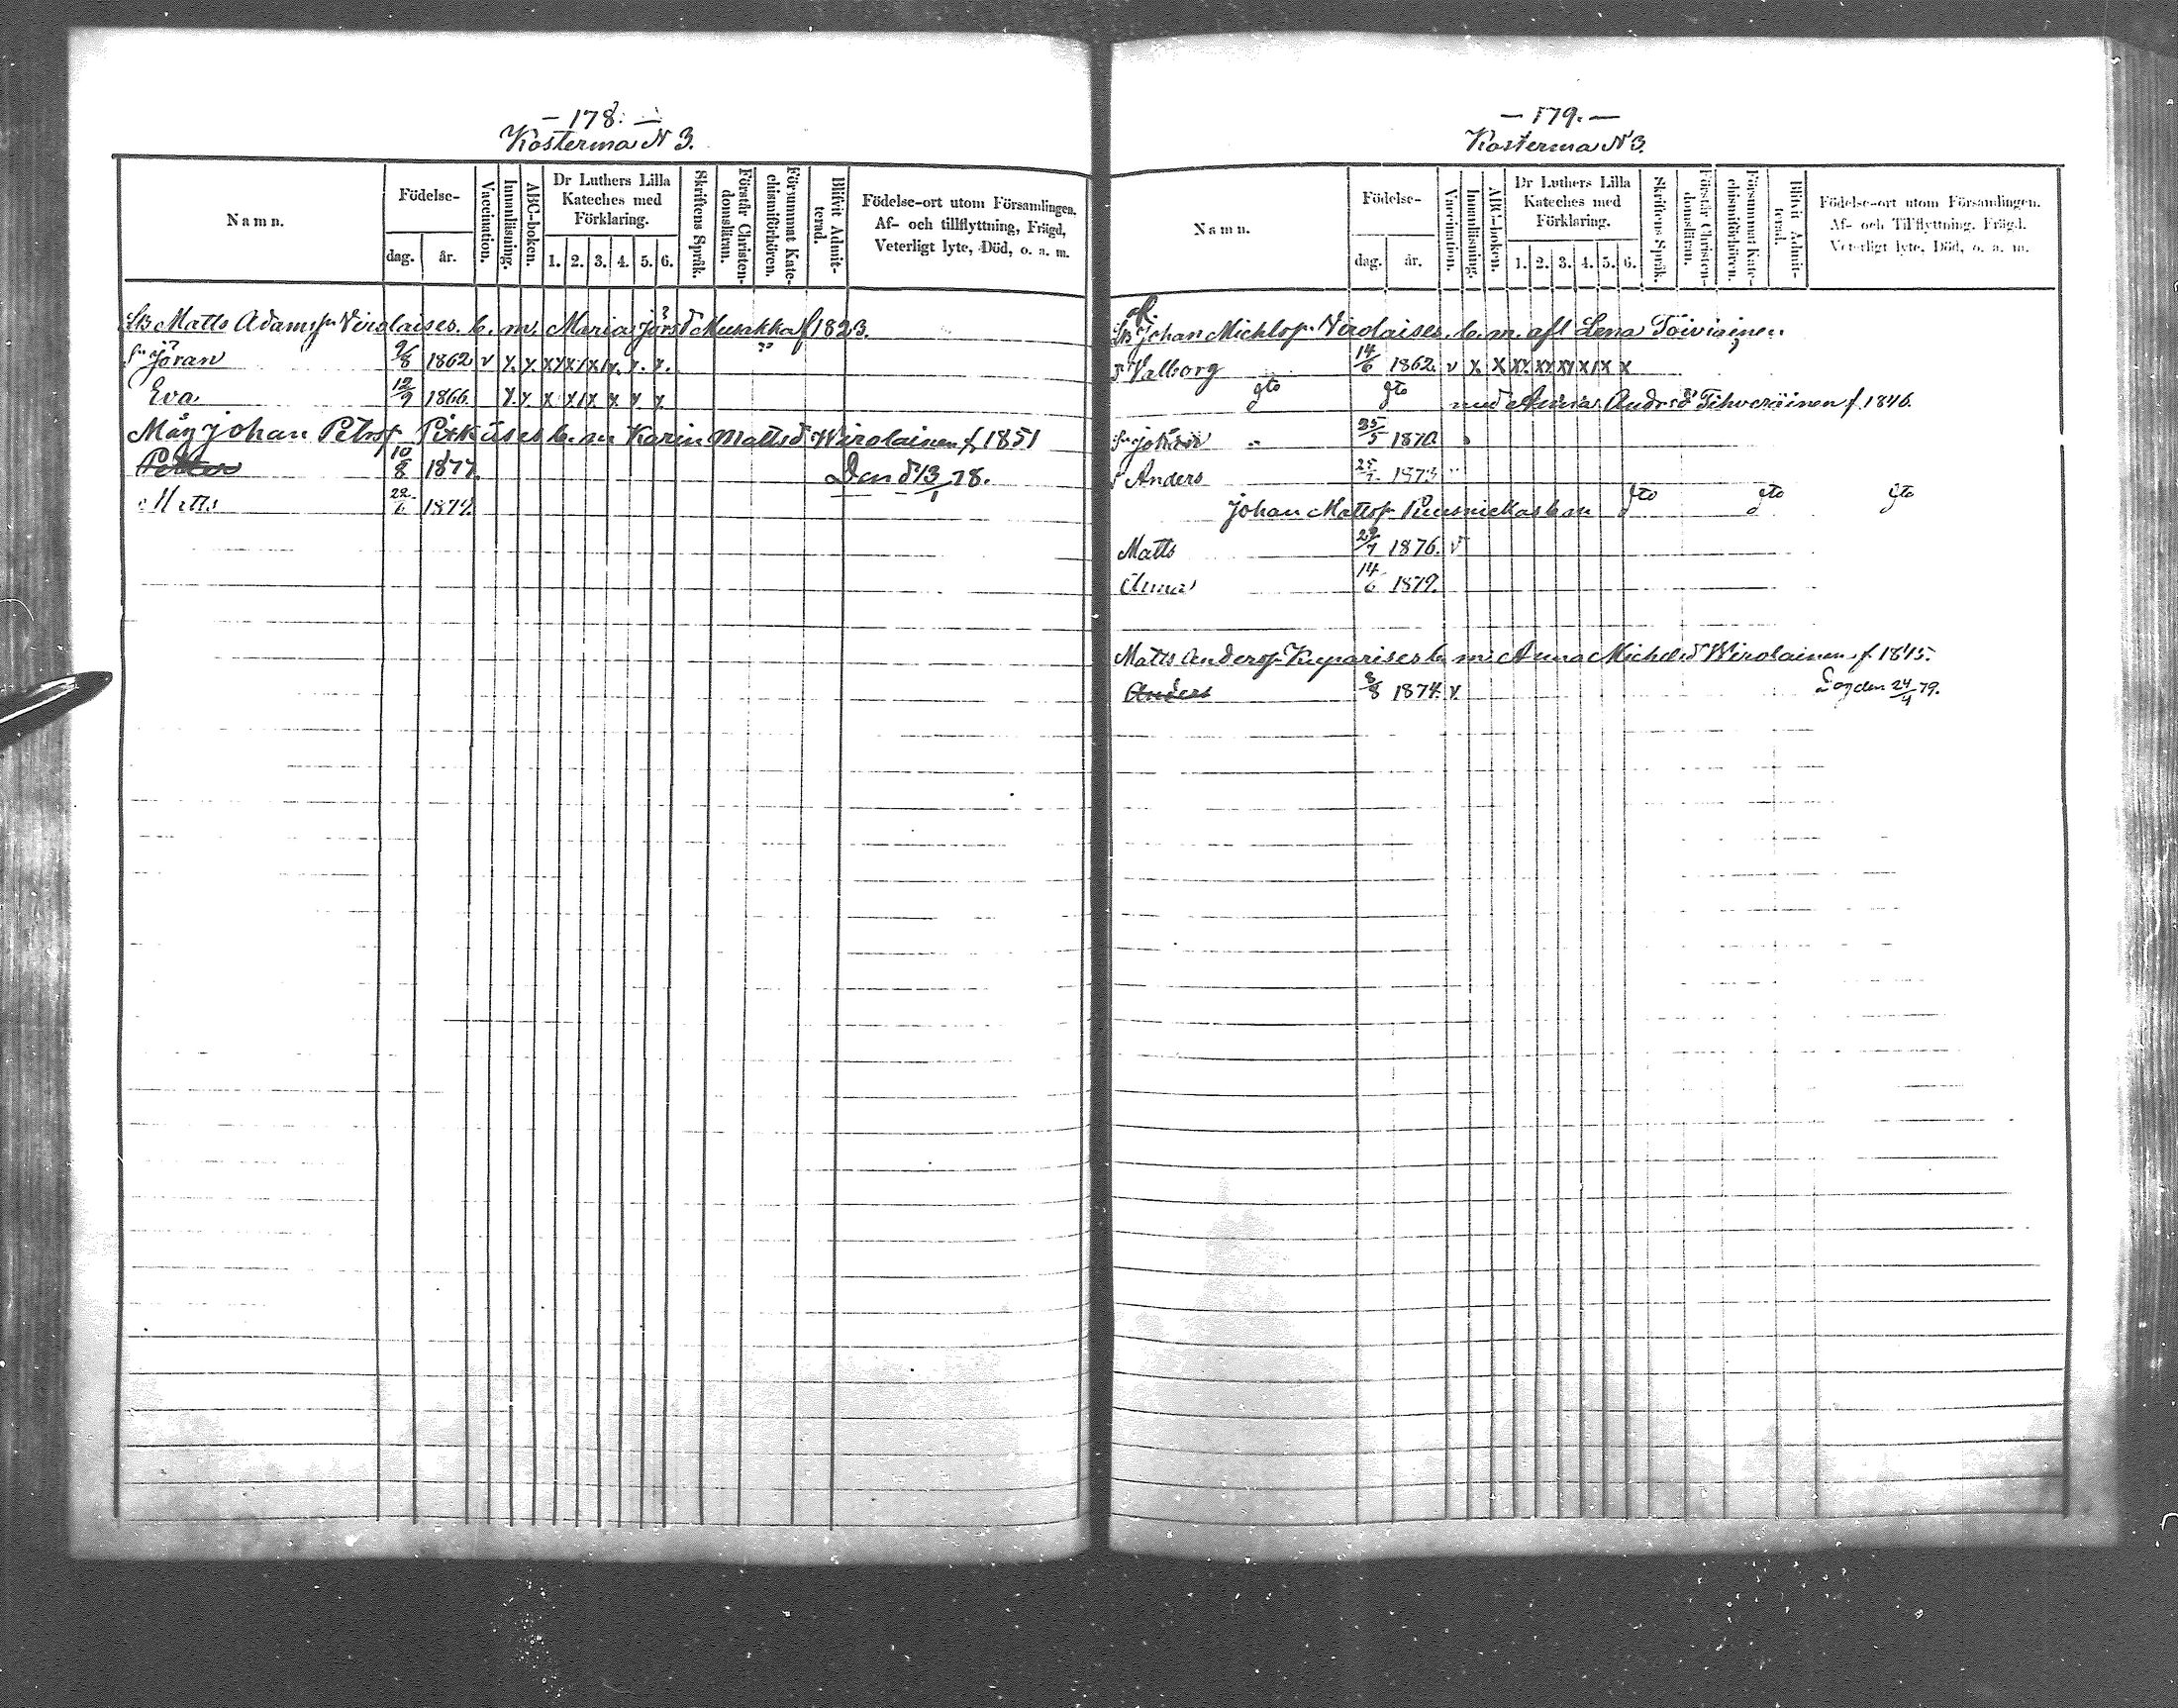 — 178. —
Kosterma N 3.
Namn.
Födelse-
dag.
år.
Vaccination.
Innanläsning.
ABC-boken.
Dr Luthers Lilla
Kateches med
Förklaring.
1. 2. 3. 4. 5. 6.
Skriftens Språk.
Förstår Christen-
domsläran.
Försummat Kate-
chismiförhören.
Blifvit Admit-
terad.
Födelse-ort utom Församlingen.
Af- och tillflyttning, Frägd,
Veterligt lyte, Död, o. a. m.
Matts Adamsn Virolaises b. m. Maria Jörsd Musakka f 1823.
Sn Jöran 9/8 1862 v x. x. x x x x x. x. x.
Eva 12/9 1866. x. x. x x x x x x
Måg Johan Petrsp Pirkäises b. m. Karin Mattsd Wirolainen f. 1851
Petter 10/8 1877. Den d 13/1 78.
Matts 22/6 1879.
— 179. —
Kosterma N 3.
Namn.
Födelse-
dag.
år.
Vaccination.
Innanläsning.
ABC-boken.
Dr Luthers Lilla
Kateches med
Förklaring.
1. 2. 3. 4. 5. 6.
Skriftens Språk.
Förstår Christen-
domsläran.
Försummat Kate-
chismiförhören.
Blifvit Admit-
terad.
Födelse-ort utom Församlingen.
Af- och Tillflyttning, Frägd,
Veterligt lyte, Död, o. a. m.
Johan Michlsp. Virolaises b. m. afl Lena Toiviainen
Valborg 14/6 1862. v x x x x x x x x
dto dto med Anna Andrsd Tihveräinen f. 1846.
Sn Johan 25/5 1870
Anders 1873
Johan Mattsp dto dto dto
Matts 1876. v
Anna 14/6 1879.
Matts Andersp Kuparises b. m. Anna Michelsd Wirolainen f. 1845.
Anders 8/8 1874. v. 24/4 79.